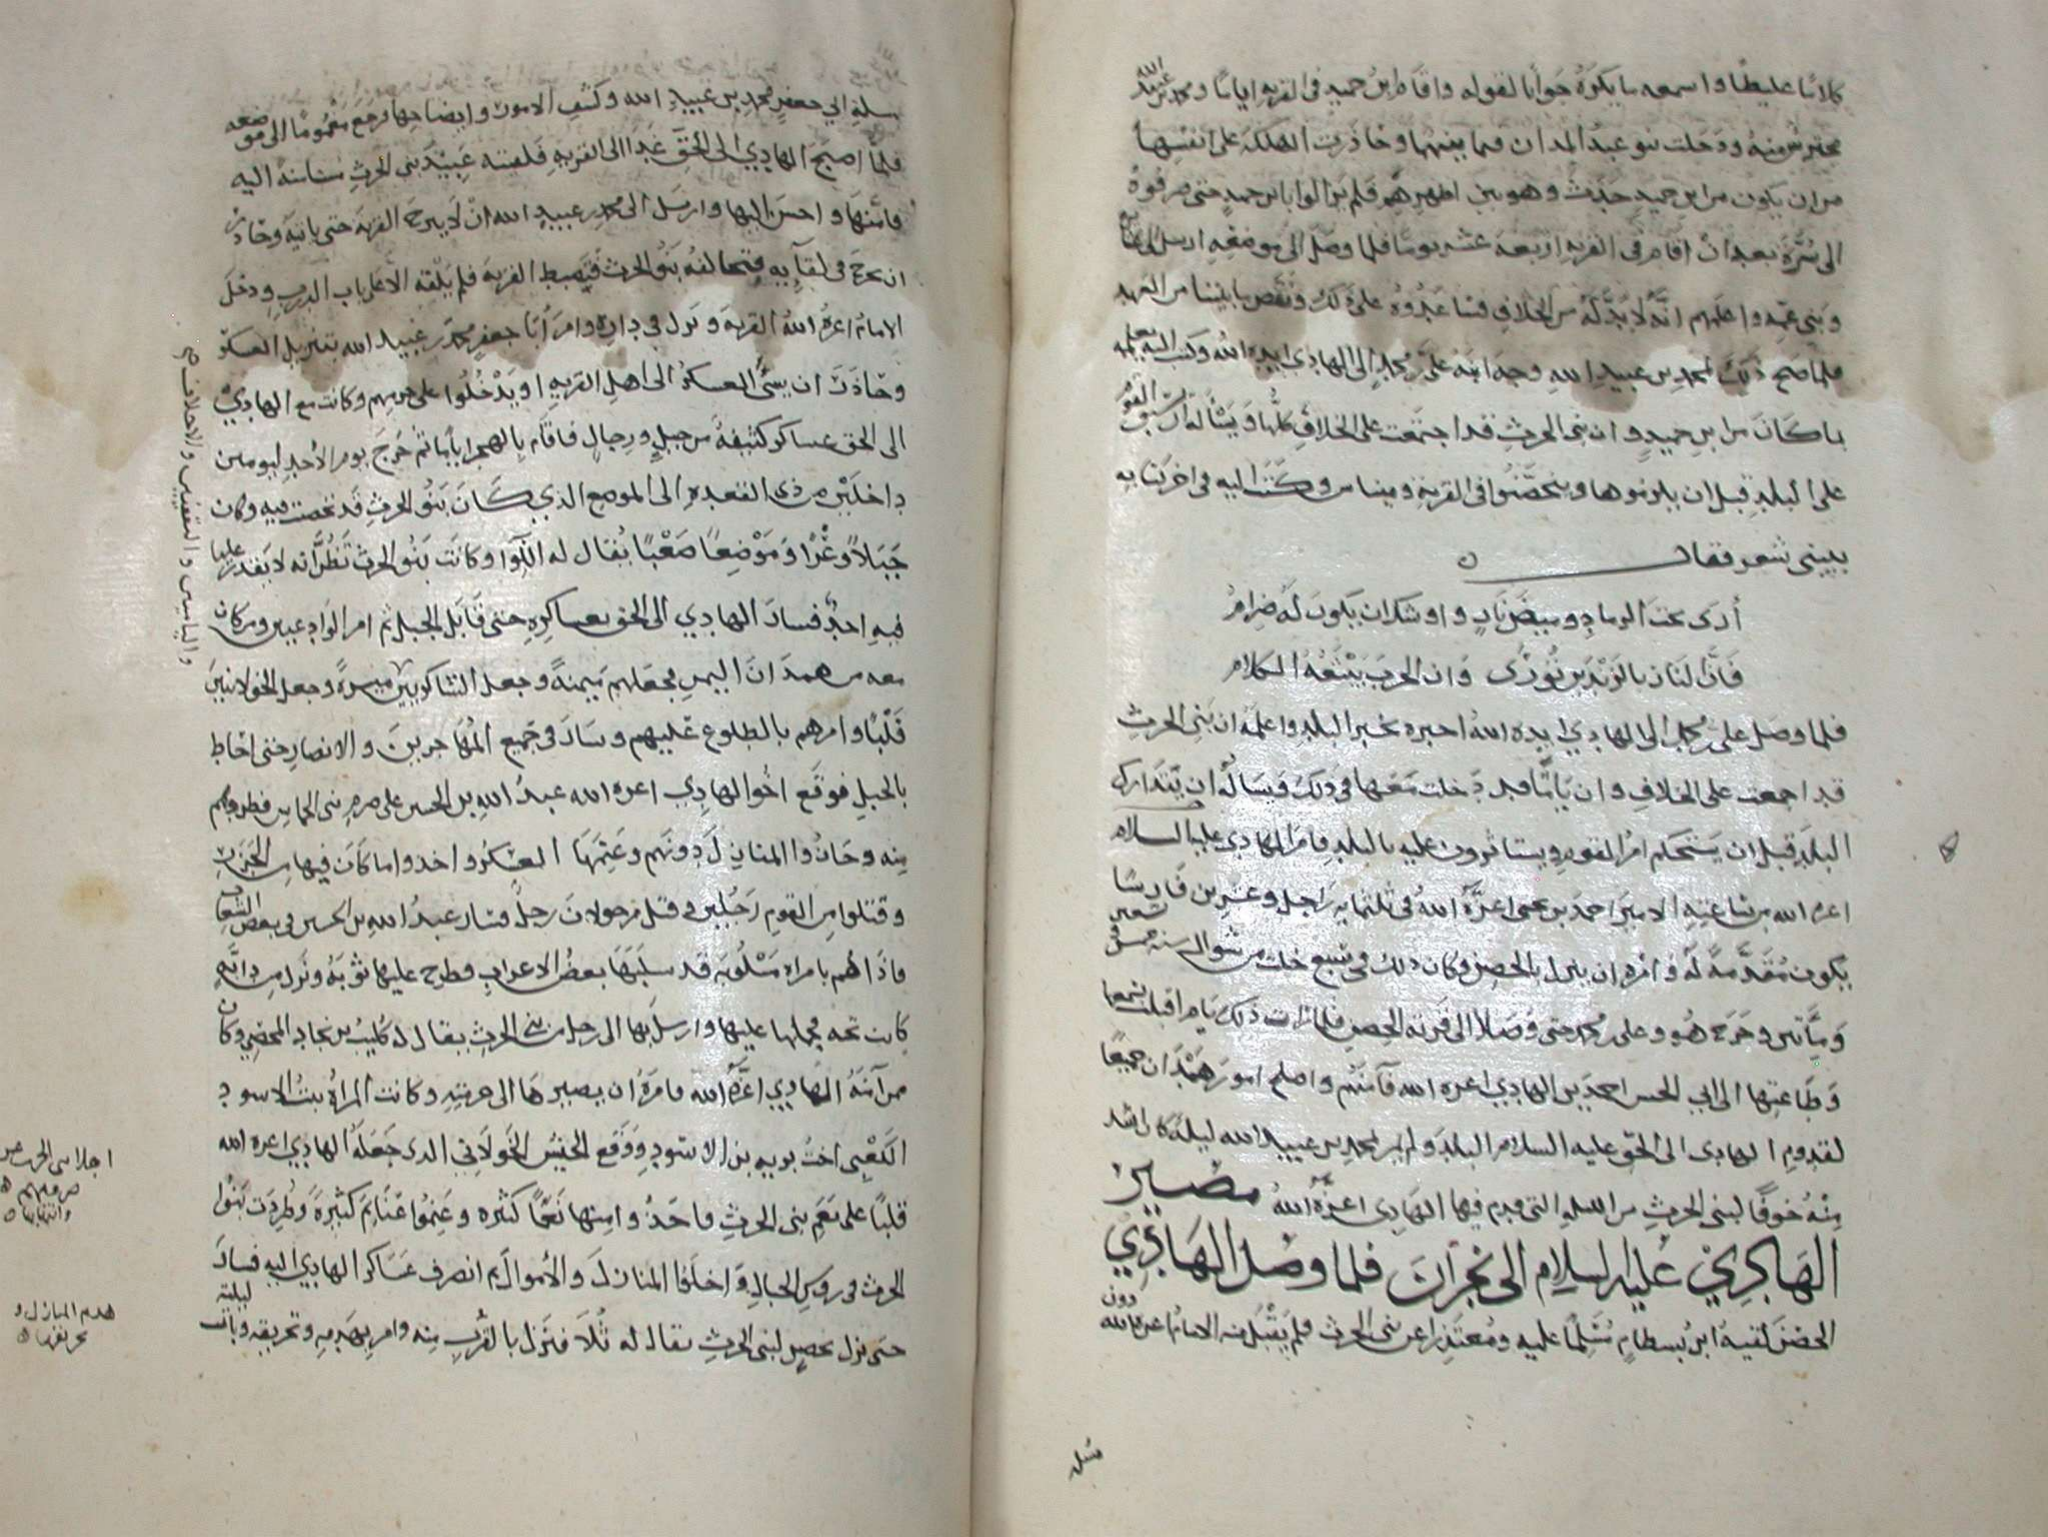 كلاما غليظا واسمعه ما يكره جوابا لقوله واقام ابن حميد في القريه اياما ومحمد بن عبيد الله
محترس منه ودخلت بنو عبد المدان فيما بينهما وحاذرت الهلكه على انفسها
من ان يكون من ابن حميد حدث وهو بين اظهرهم فلم يزالوا بابن حميد حتى صرفوه
الى بعد ان اقام في القريه اربعه عشر يوما فلما وصل الى موضعه ارسل الى
وبني عمه واعلمهم انه لا بد له من الخلاف على ذلك ونقض ما بيننا من العهد
فلما صح ذلك لمحمد بن عبيد الله وجه ابنه علي بن محمد الى الهادي ايده الله وكتب اليه يعلمه
بما كان من ابن حميد وان بني الحرث قد اجتمعت على الخلاف كلها ويسأله ان يسبق القوم
على البلد قبل ان يلزموها ويتحصنوا في القريه وميناس وكتب اليه في اخر كتابه
ببيتي شعر فقال
أرى تحت الرماد وميض نار واوشك ان يكون له ضرام
فان النار بالزندين تورى وان الحرب يبتعثه الكلام
فلما وصل علي بن محمد الى الهادي ايده الله اخبره بخبر البلد واعلمه ان بني الحرث
قد اجمعت على الخلاف وان ياما قد دخلت معها في ذلك فيساله ان يتدارك
البلد قبل ان يستحكم امر القوم ويستاثرون عليه بالبلد فامر الهادي عليه السلام
اعزه الله من ساعته الامير احمد بن يحيى اعزه الله في ثلثمايه راجل وعشرين فارسا
يكون مقدمة له وامره ان ينزل بالحصن وكان ذلك في تسع خلت من شوال سنه خمس وتسعين
ومأتين وخرج هو وعلي بن محمد حتى وصلا الى قرية الحصن فلما رات ذلك يام اقبلت بسمعها
وطاعتها الى ابي الحسن احمد بن الهادي اعزه الله فآمنهم واصلح امور همدان جميعا
لقدوم الهادي الى الحق عليه السلام البلد ولم ير محمد بن عبيد الله ليلة كان اشد
منه خوفا لبني الحرث من الليله التي قدم فيها الهادي اعزه الله مصير
الهادي عليه السلام الى نجران فلما وصل الهادي
الحصن لقيه ابن بسطام مسلما عليه ومعتذرا عن بني الحرث فلم يقبل منه الامام اعزه الله دون
مسل
مسلة الى جعفر محمد بن عبيد الله وكشف الامور وايضاحها فرجع مغموما الى موضعه
فلما اصبح الهادي الى الحق غدا الى القريه فلقيته عبيد بني الحرث مستامنه اليه
فامنها واحسن اليها وارسل الى محمد بن عبيد الله ان لا يبرح القريه حتى ياتيه وحاذر
ان يخرج في لقآيه فتخالفه بنو الحرث فيضبط القريه فلم يلقه الا على باب الدرب ودخل
الامام اعزه الله القريه ونزل في داره وامر أبا جعفر محمد بن عبيد الله بتنزيل العسكر
وحاذر ان يسئ العسكر الى اهل القريه او يدخلوا على حرمهم وكانت مع الهادي
الى الحق عساكر كثيفة من خيل ورجال فاقام بالهجر اياما ثم خرج يوم الأحد ليومين
داخلين من ذي القعده الى الموضع الذي كان بنو الحرث قد تحصنت فيه وكان
جبلا وعرا وموضعا صعبا يقال له اللوا وكانت بنو الحرث تظن انه لا يقدر عليها
فيه احد فسار الهادي الى الحق بعساكره حتى قابل الجبل ثم امر الوادعيين ومن كان
معه من همدان اليمن فجعلهم ميمنة وجعل الشاكريين ميسرة وجعل الخولانيين
قلبا وامرهم بالطلوع عليهم وسار في جميع المهاجرين والانصار حتى احاط
بالجبل فوقع اخو الهادي اعزه الله عبد الله بن الحسين على صرم بني الحماس فطردهم
منه وحازوا المنازل دونهم وغنمها العسكر واخذوا ما كان فيها من
وقتلوا من القوم رجلين وقتل من خولان رجل فسار عبد الله بن الحسين في بعض الشعاب
فاذا هم بامراه مسلوبه قد سلبها بعض الاعراب فطرح عليها ثوبه ونزل من دابته
كانت تحته فحملها عليها وارسل بها الى رجل من بني الحرث يقال له كليب بن نجاد المحضي وكان
ممن آمنه الهادي اعزه الله فامره ان يصيرها الى حرمته وكانت المرأة بنت الاسود
الكعبي اخت بن الاسود ووقع الجيش الخولاني الذي جعله الهادي اعزه الله
قلبا على نعم بني الحرث فاخذوا منها نعما كثيره وغنموا غنايم كثيرة وطردت بنوا
الحرث في روس الجبال واخلفوا المنازل والأموال ثم انصرف عساكر الهادي اليه فسار
حتى نزل بحصن لبني الحرث يقال له ثلا فنزل بالقرب منه وامر بهدمه وتحريقه وبات ليلته
والياسين والثقفيين والاحلاف
اجلاء بني الحرث عن
صرمهم
وانتهابها
هدم المنازل و
تحريقها